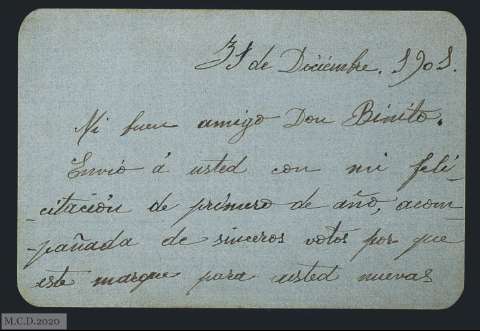 31 de Diciembre. 1901.
Mi buen amigo Don Binito.
Envio á usted con mi feli-
-citación de primero de año, acom-
-pañada de sinceros votos por que
este marque para usted nuevas
M.C.D.2020